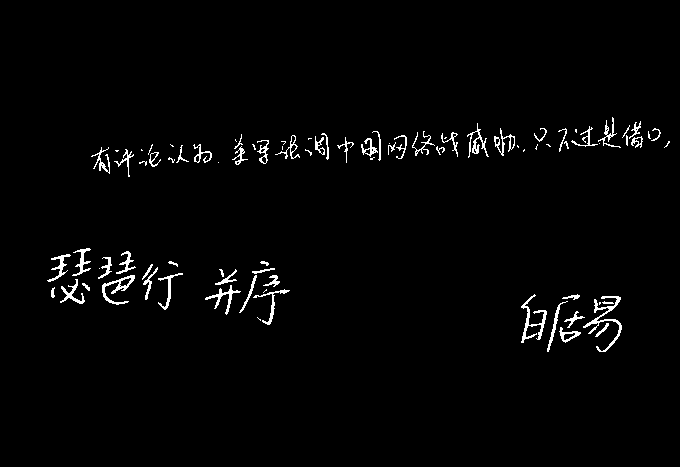 有评论认为，美军强调中国网络战威胁，只不过是借口，
琵琶行 并序
白居易